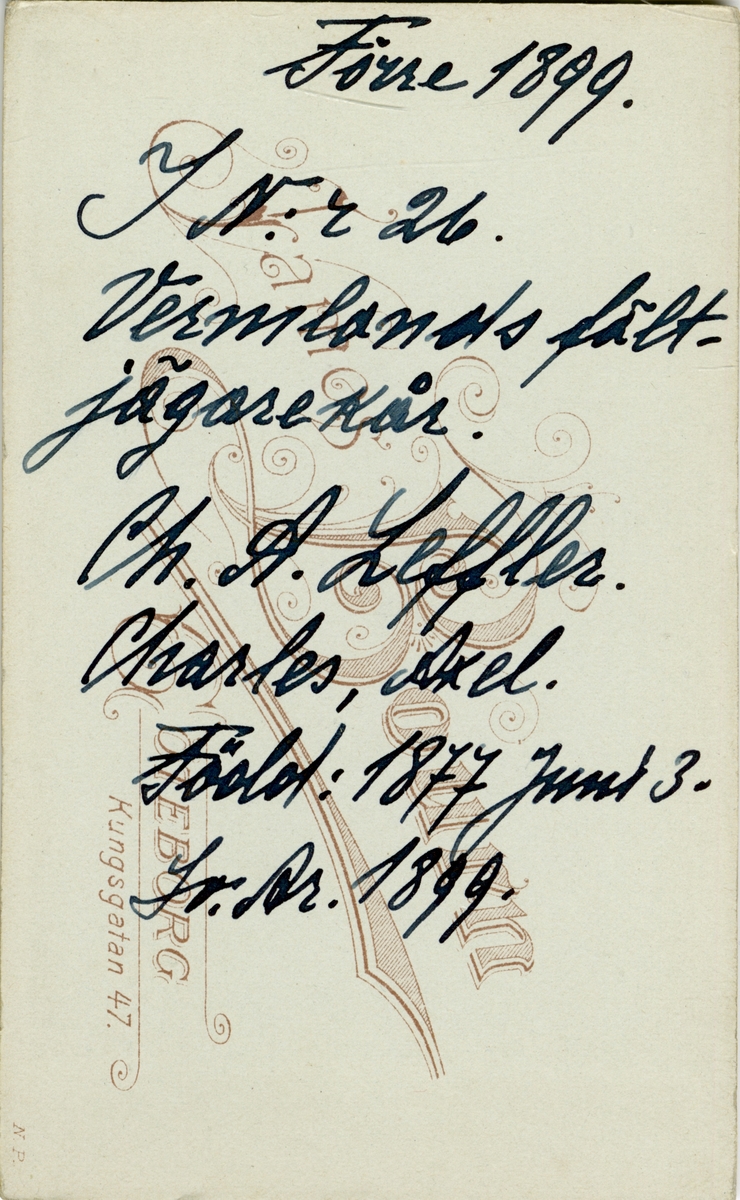 Förre 1899.
I N:r 26.
Vermlands fält-
jägarekår.
Ch. A. Leffler.
Charles, Axel.
Född: 1877 Juni 3.
Kungsgatan 47.
N.P.